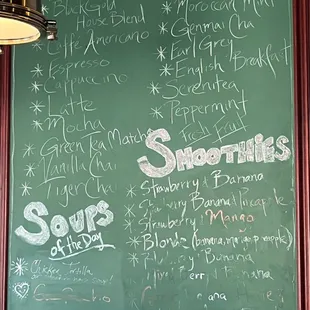 Black Gold
House Blend
* Caffé Americano
* Espresso
* Cappuccino
* Latte
* Mocha
* Green Tea Matcha
* Vanilla Chai
* Tiger Chai
Soups
of the Day
* Chicken Tortilla
* Moroccan Mint
* Genmai Cha
* Earl Grey
* English Breakfast
* Serenitea
* Peppermint
* Iced Fruit
Smoothies
* Strawberry & Banana
* Banana Pineapple
* Strawberry & Mango
* Blonde (banana, mango, pineapple)
* Banana
* Berry & Banana